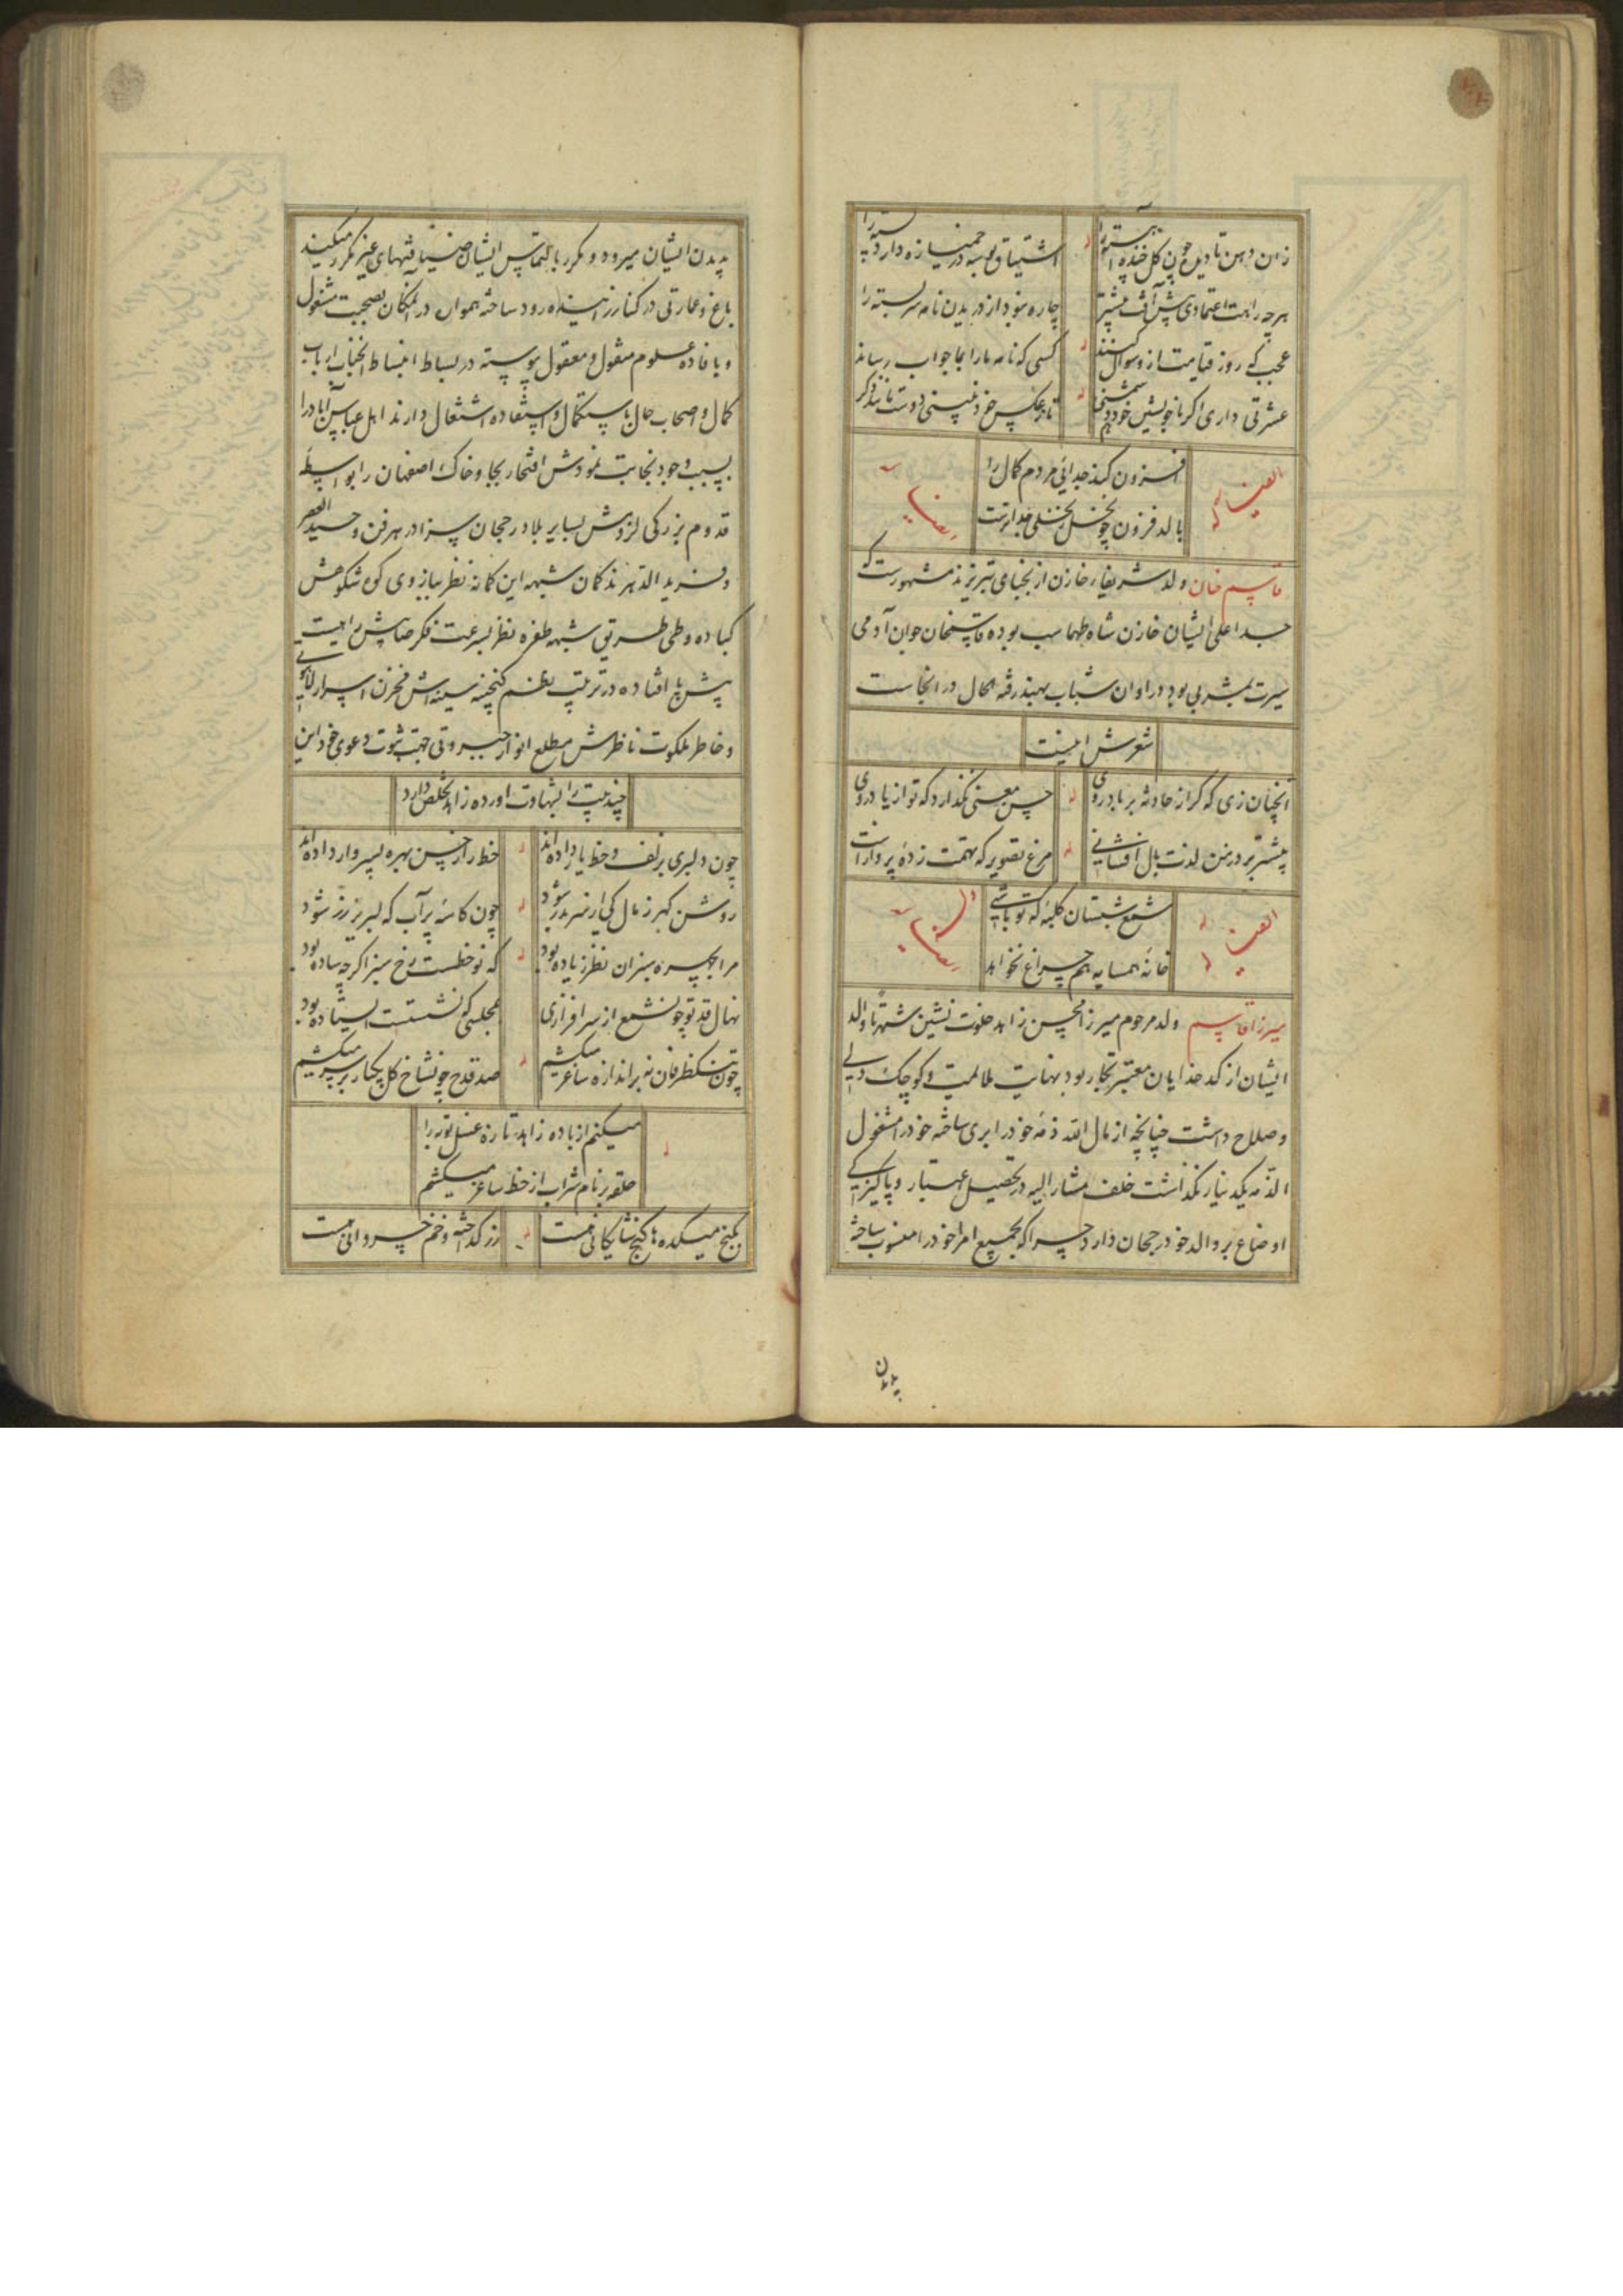 زان دهن تا دیده‌ام چون گل خنده
اشتیاق بوسه در خمیازه دارد
هرچه را هست اعتمادی پیش آفت بیشتر
چاره نبود از دریدن نامه سربسته را
عجب که روز قیامت ازو سوال کنند
کسی که نامه ما را بما جواب رساند
عشرتی داری اگر با خویشتن خود دشمنی
ایضا له
افزون کند جدائی مردم کمال را
بالد فزون چو نخل ز نخلی جداترست
قاسم خان ولد شریفاء خازن از نجبای تبریزند مشهورست که
جد اعلی ایشان خازن شاه طهماسب بوده قاسمخان جوان آدمی
سیرت بشربی بود در اوان شباب بهند رفته الحال در انجاست
شعرش اینست
آنچنان زی که گر از حادثه بر باد روی
حسن معنی نگذارد که تو از یاد روی
بیشتر بردن لذت بال افشانی
مرغ تصویر که تهمت زدهٔ پروازست
ایضا له
شمع شبستان کلبهٔ که تو باشی
خانهٔ همسایه هم چراغ نخواهد
میرزا قاسم ولد مرحوم میرزا محسن زاهد خلوت نشین شهرتا والد
ایشان از کدخدایان معتبر تجار بود نهایت ملایمت و کوچک دلی
و صلاح داشت چنانچه از مال الله ذمه خود را بری ساخته خود را مشغول
الذمه یکدینار نگذاشت خلف مشارالیه در تحصیل اعتبار و پاکیزگی
اوضاع بر والد خود رجحان دارد چرا که بجمیع امرا خود را منسوب ساخته
بدیدن
بدیدن ایشان میرود و مکرر بالتماس ایشان ضیافتهای غیر مکرر میکنند
باغ و عمارتی در کنار زاینده رود ساخته همواره در آنمکان بصحبت مشغول
و بافاده علوم منقول و معقول پیوسته در بساط انبساط آنجناب ارباب
کمال و اصحاب حال باستکمال و استفاده اشتغال دارند اهل عباس آباد را
بسبب وجود نجابت نمودش افتخار بجا و خاک اصفهان را بواسطه
قدوم بزرگی لزومش بسایر بلاد رجحان سزا در هر فن وحید العصر
و فرید الدهرند کمان شبهه ابن کمانه نظر ببازوی کوه شکوهش
کباده و طی طریق شبهه طفره نظر بسرعت فکر صایبش راهیست
پیش پا افتاده در ترتیب نظم گنجینه سینه‌اش مخزن اسرار لاهوتی
و خاطر ملکوت ناظرش مطلع انوار جبروتی جهت ثبوت دعوی خود این
چند بیت را بشهادت اورده زاهد تخلص دارد
چون دلبری بزلف و خط یار داده‌اند
خط را ز حسن بهره بسیار داده‌اند
روشن گهر ز مال کی از سر بدر شود
چون کاسه پر آب که لبریز زر شود
مرا بچهره سبزان نظر زیاده بود
که نو خطست رخ سبز اگرچه ساده بود
نهال قد تو چون شمع از سرافرازی
بمجلسی که نشستست ایستاده بود
چون تنکظرفان نه بر اندازه ساغر میکشیم
صد قدح چون شاخ گل یکبار بر سر میکشیم
میکنم از باده زاهد تازه غسل توبه را
حلقه بر نام شراب از خط ساغر میکشم
بکنج میکده‌ها گنج شایگانی هست
زر گداخته و خم خسروانی هست